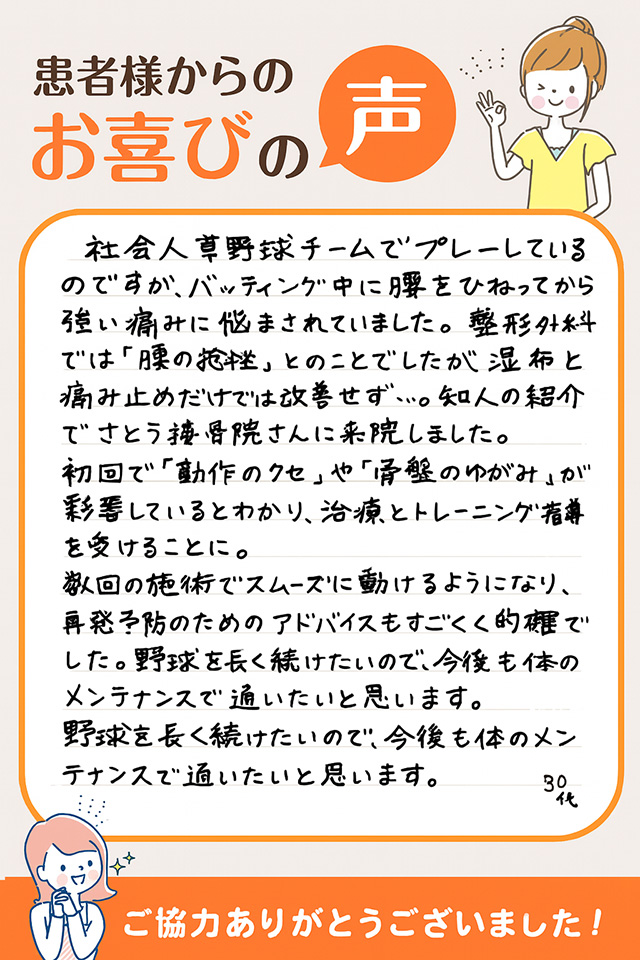 患者様からの
お喜びの声
社会人草野球チームでプレーしている
のですが、バッティング中に腰をひねってから
強い痛みに悩まされていました。整形外科
では「腰の捻挫」とのことでしたが湿布と
痛み止めだけでは改善せず…。知人の紹介
でさとう接骨院さんに来院しました。
初回で「動作のクセ」や「骨盤のゆがみ」が
影響しているとわかり、治療とトレーニング指導
を受けることに。
数回の施術でスムーズに動けるようになり、
再発予防のためのアドバイスもすごくく的確で
した。野球を長く続けたいので、今後も体の
メンテナンスで通いたいと思います。
野球を長く続けたいので、今後も体のメン
テナンスで通いたいと思います。
30代
ご協力ありがとうございました!